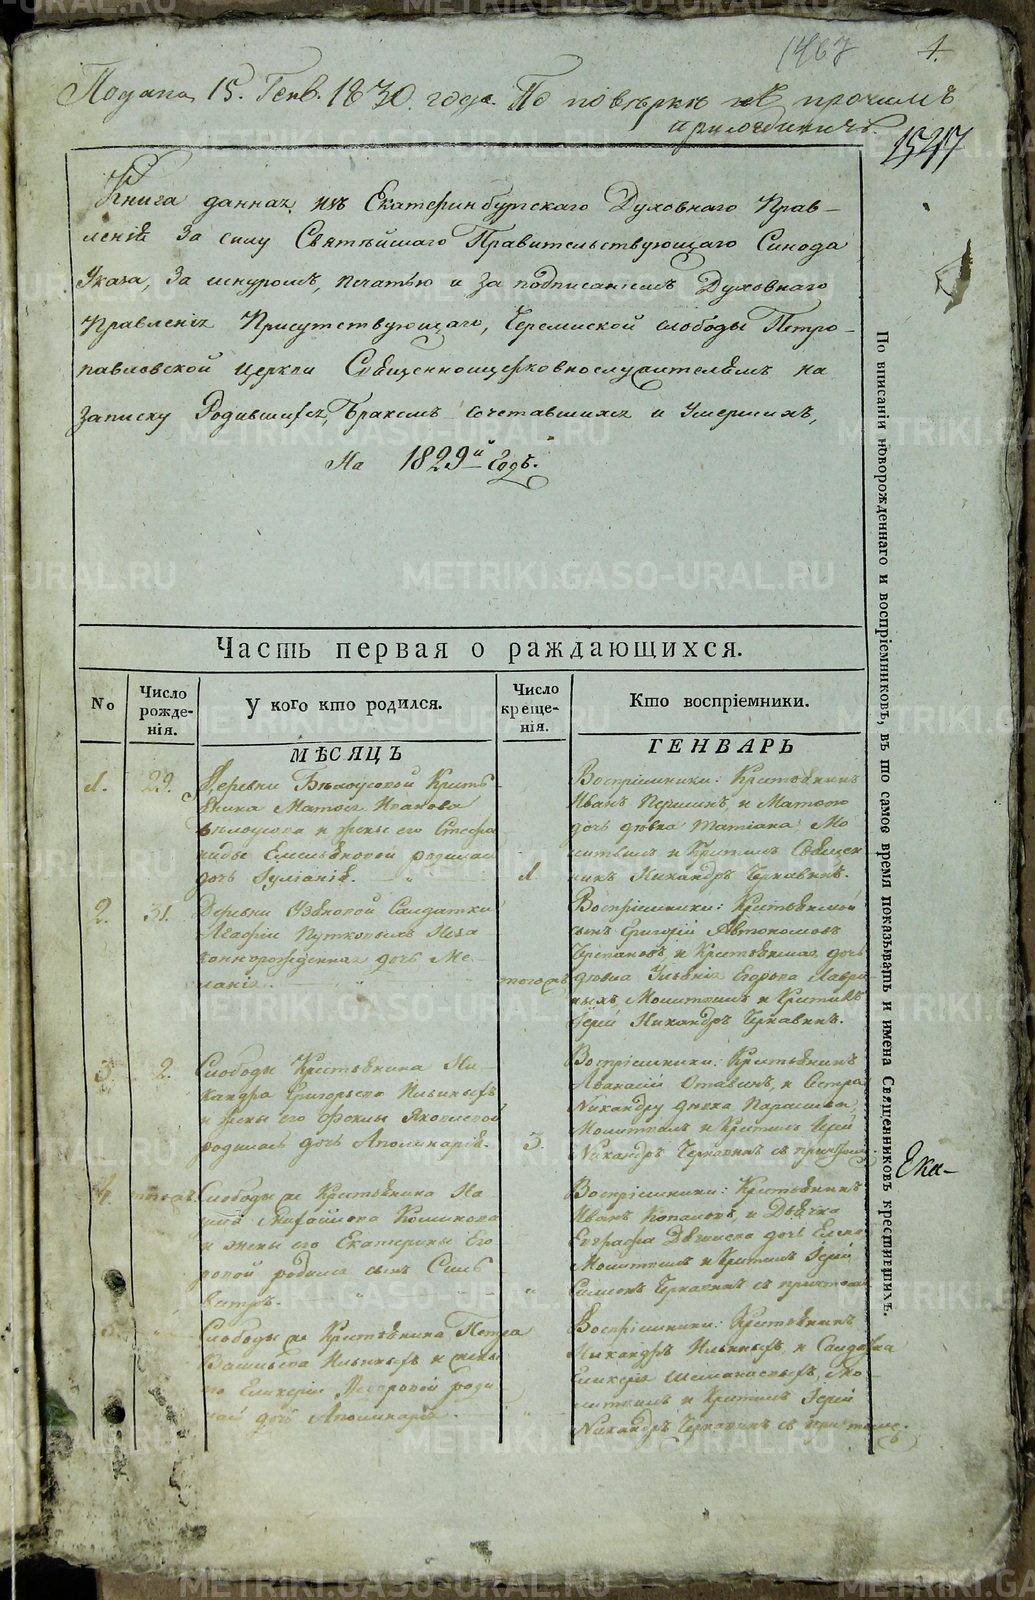 1467
1.
Подана 15. Генв. 1830. года. По повѣркѣ къ прочимъ
приложенiямъ.
1547
Книга данная изъ Екатеринбургскаго Духовнаго Прав–
ленiя за силу Святѣйшаго Правительствующаго Синода
Указа, за шнуромъ, печатью и за подписанiемъ Духовнаго
Правленiя Присутствующаго, Черемиской слободы Петро–
павловской церкви Священноцерковнослужителямъ на
записку Родившихся, Бракомъ сочетавшихся и Умершихъ,
На 1829й Годъ.
Часть первая о раждающихся.
№
Число рожде-нiя.
У кого кто родился.
Число креще-нiя.
Кто воспрiемники.
МѢСЯЦЪ
ГЕНВАРЬ
1. 29. Деревни Бѣлоусовой Кресть
янина Матвея Иванова
Бѣлоусова и жены его Стефа
ниды Емельяновой родилась
дочь Iулiанiя.
1
Воспрiемники: Крестьянинъ
Иванъ Першинъ, и Матвея
дочь дѣвка Татiана. Мо
литвилъ и Крестилъ Священ
никъ Никандръ Чернавинъ.
2. 31. Деревни Узяновой Салдатки
Агафiи Путковыхъ Неза
коннорожденная дочь Ме
ланiя.
тогожъ
Воспрiемники: Крестьянской
сынъ Григорiй Автономовъ
Черепановъ, и Крестьянская дочь
дѣвка Улянiя Егорова Лаври
ныхъ, Молитвилъ и Крестилъ
Iерей Никандръ Чернавинъ.
3. 2. Слободы Крестьянина Ни
кандра Григорьева Ильиныхъ
и жены его Феклы Яковлевой
родилась дочь Аполинарiя.
3.
Воспрiемники: Крестьянинъ
Афанасiй и Сестра
Никандру дѣвка Парасковья,
Молитвилъ и Крестилъ Iерей
Никандръ Чернавинъ съ причтомъ
4. тогожъ Слободы же Крестьянина
и жены его Екатерины Его
ровой родился сынъ Силь
вестръ.
Воспрiемники: Крестьянинъ
Иванъ Копаловъ, и Дьячка
дочь Елена
Молитвилъ и Крестилъ Iерей
Симеонъ Чернавинъ съ причтомъ
5. Слободы же Крестьянина Петра
Васильева Ильиныхъ и жены
его Гликерiи роди
лась дочь Аполинарiя.
Воспрiемники: Крестьянинъ
Никандръ Ильиныхъ, и Салдатка
Гликерiя Мо
литвилъ и Крестилъ Iерей
Никандръ Чернавинъ съ причтомъ.
По вписанiи новорожденнаго и воспрiемниковъ, въ то самое время показывать и имена Священниковъ крестившихъ.
Ека–
METRIKI.GASO-URAL.RU